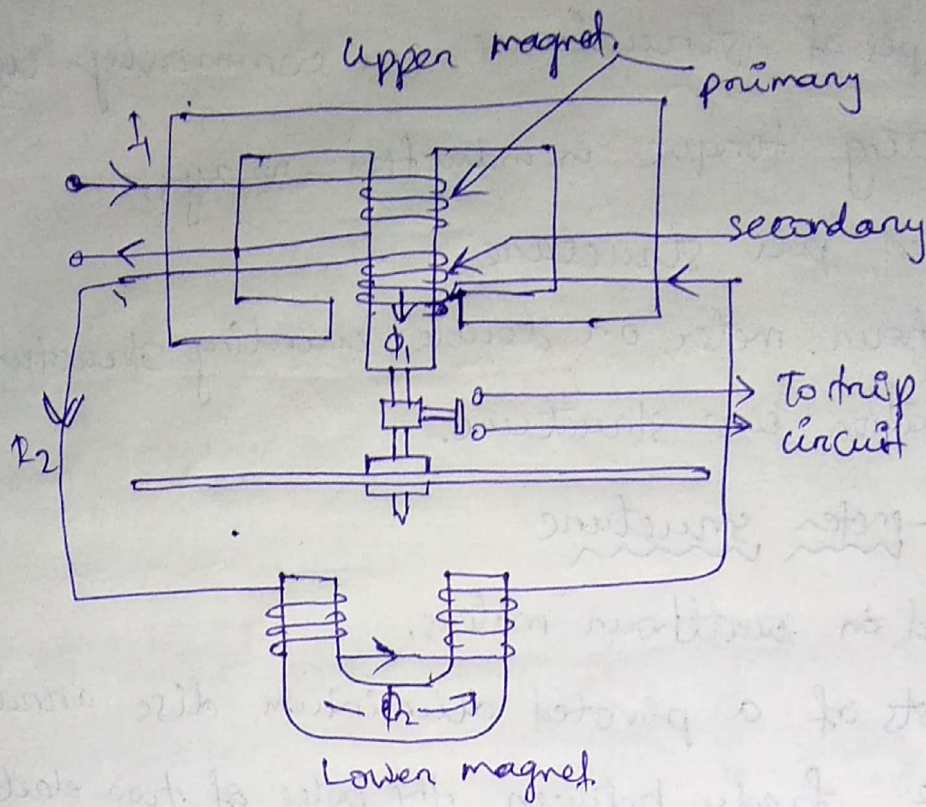 Upper magnet.
primary
I1
secondary
ϕ1
To trip
circuit
I2
ϕ2
Lower magnet.